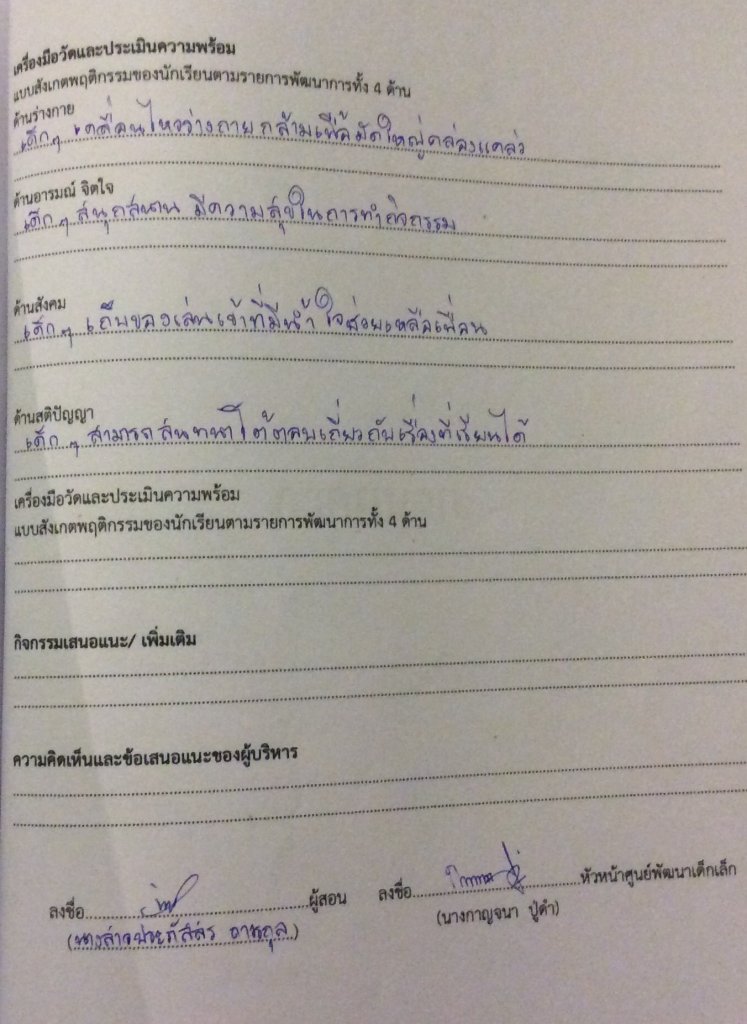 เครื่องมือวัดและประเมินความพร้อม
แบบสังเกตพฤติกรรมของนักเรียนตามรายการพัฒนาการทั้ง 4 ด้าน
ด้านร่างกาย
เด็กๆ เคลื่อนไหวร่างกาย กล้ามเนื้อมัดใหญ่คล่องแคล่ว
ด้านอารมณ์ จิตใจ
เด็ก ๆ สนุกสนาน มีความสุขในการทำกิจกรรม
ด้านสังคม
เด็ก ๆ เก็บของเล่นเข้าที่มีน้ำใจช่วยเหลือเพื่อน
ด้านสติปัญญา
เด็ก ๆ สามารถสนทนาโต้ตอบเกี่ยวกับเรื่องที่เรียนได้
เครื่องมือวัดและประเมินความพร้อม
แบบสังเกตพฤติกรรมของนักเรียนตามรายการพัฒนาการทั้ง 4 ด้าน
กิจกรรมเสนอแนะ/ เพิ่มเติม
ความคิดเห็นและข้อเสนอแนะของผู้บริหาร
ลงชื่อ ผู้สอน ลงชื่อ หัวหน้าศูนย์พัฒนาเด็กเล็ก
(นางสาว) (นางกาญจนา ปู่ดำ)